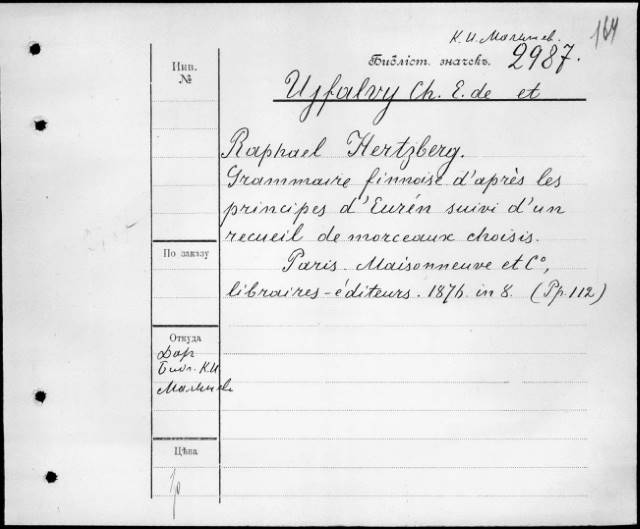 164
К. И. Малышев.
Библіот. значекъ. 2987.
Инв.
№
Ujfalvy Ch. E. de et
Raphael Hertzberg.
Grammaire finnoise d'après les
principes d'Eurén suivi d'un
recueil de morceaux choisis.
По заказу
Paris. Maisonneuve et Cº,
libraires-éditeurs. 1876. in 8. (Pp. 112)
Откуда
Дар
Библ. К.И.
Малышев
Цѣна